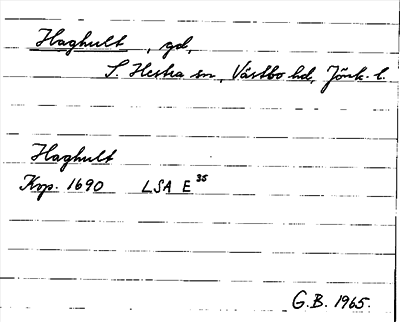 Haghult, gd,
S. Hestra sn, Västbo hd, Jönk. l.
Haghult
Kop. 1690 LSA E 35
G.B. 1965.